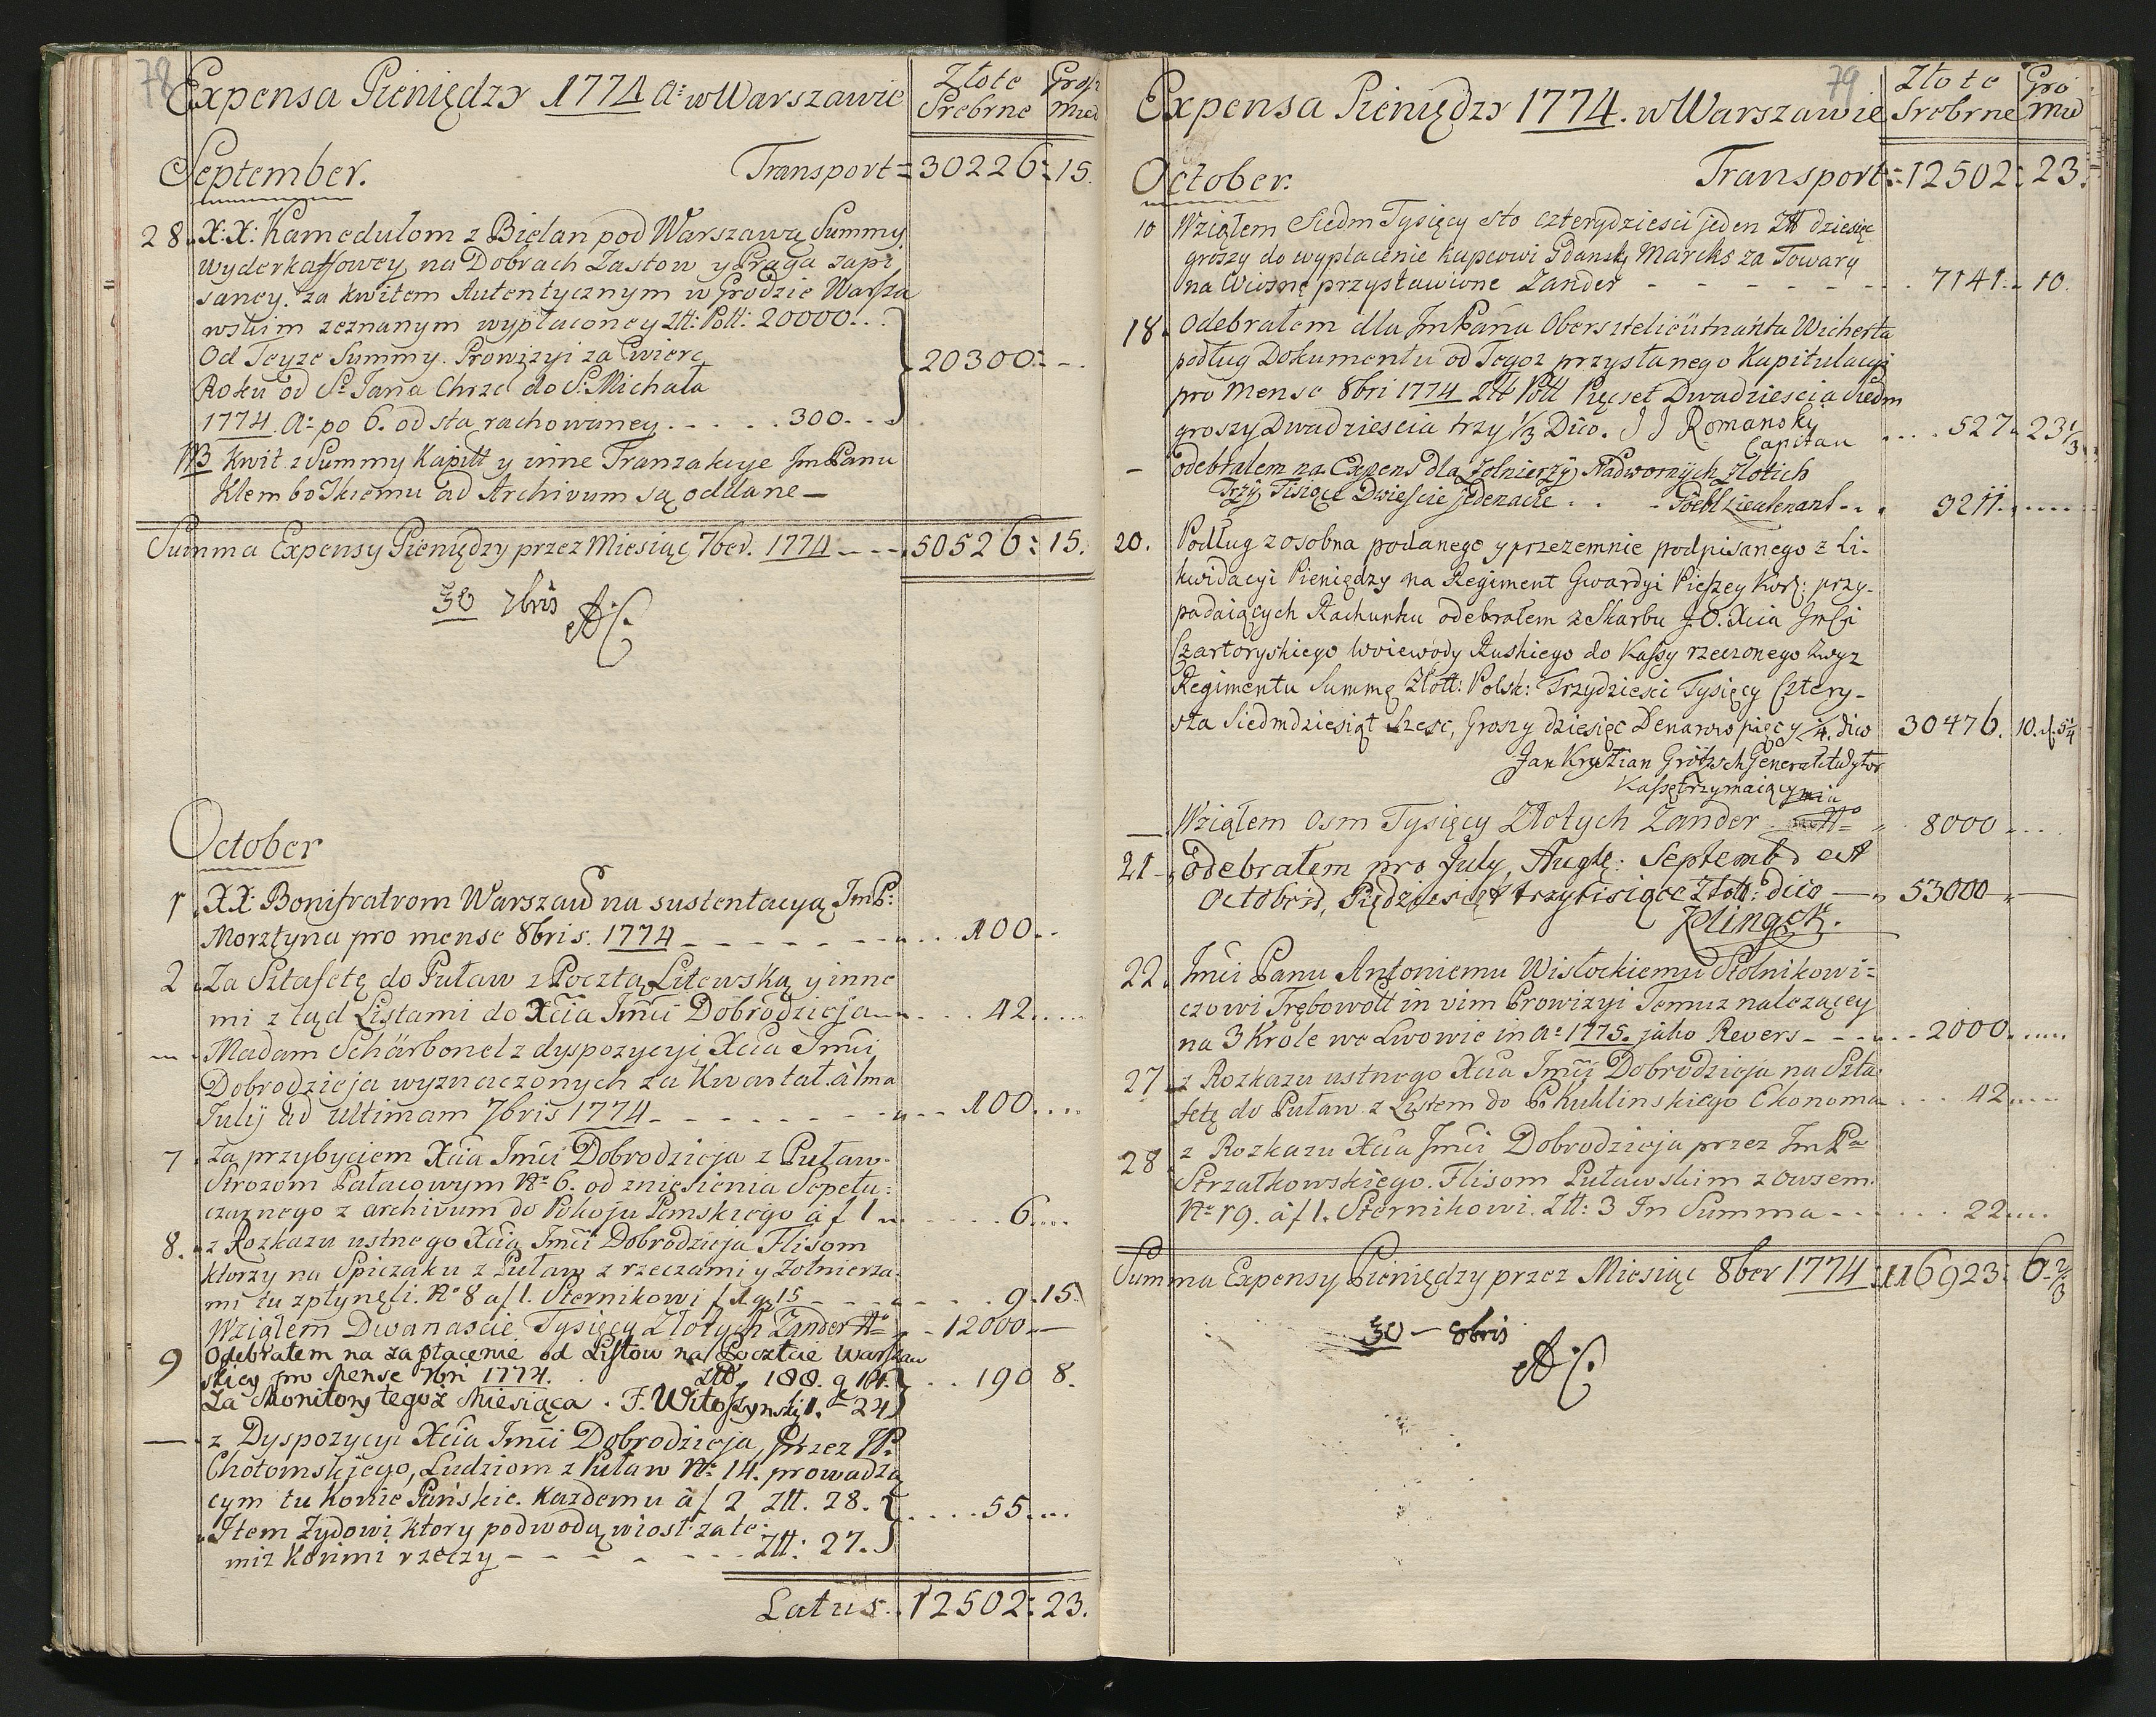 78
Expensa Pieniędzy 1774 Aº w Warszawie
Złote Srebrne
Grosz Mied
September.
Transport = 30226 : 15.
28. X: X: Kamedulom z Bielan pod Warszawą Summy
Wyderkaffowey na Dobrach Zastow y Praga zapi
saney. za kwitem Autentycznym w Grodzie Warsza
wskim zeznanym wypłaconey Złt: Poll: 20000...
Od Teyże Summy. Prowizyi za Cwierc
Roku od Sº Jana Chrzci do S: Michała
1774. Aº po 6. od sta rachowaney . . . . . 300. . . 20300 : - .
NB Kwit z Summy Kapitt y inne Tranzakcye Jm Panu
Klembowskiemu ad Archivum są oddane —
Summa Expensy Pieniędzy przez Miesiąc 7ber. 1774 - - - . 50526 : 15.
30 7bris AC.
October
1. XX: Bonifratrom Warszaw na sustentacyą JmP:
Morztyna pro mense 8bris. 1774 - - - - - - - . . . 100. .
2. Za Sztafetę do Puław z Pocztą Litewską y inne
mi z tąd Listami do Xcia Jmci Dobrodzieja . . . . 42. . . .
— Madam Schärbonel z dyspozycyi Xcia Jmci
Dobrodzieja wyznaczonych za Kwartał. à 1ma
Julij ad ultimam 7bris 1774 - - - - - - - - - 100. . . .
7. Za przybyciem Xcia Jmci Dobrodzieja z Puław.
Strozom Pałacowym Nº 6. od zniesienia Sepetu:
czarnego z archivum do Pokoju Pamskiego à f 1 . . . . . 6. . . .
8. z Rozkazu ustnego Xcia Jmci Dobrodzieja Flisom
ktorzy na Spiczaku z Puław z rzeczami y Zołnierza.
mi tu zpłynęli. Nº 8 a f 1. Sternikowi f 1 g 15 - - - - . 9. 15.
Wziąłem Dwanascie Tysięcy Złotych Zander - 12000 —
9 Odebrałem na zapłacenie od Listow na Poczcie Warszaw
skiey pro Mense 7bri 1774. Złt. 188. g 14. . . . 190 8.
Za Monitory tegoż Miesiąca . F. Witoszynski 1. " 24
— z Dyspozycyi Xcia Jmci Dobrodzieja, przez JP:
Chołomskiego, Ludziom z Puław Nº 14. prowadzą
cym tu konie Pańskie. Kazdemu à f 2 Złt. 28.
. . . . 55. . .
Item Zydowi ktory podwodą wiosł za te:
miz konmi rzeczy - - - - - - - . Złt: 27.
Latus . . 12502 : 23.
79
Expensa Pieniędzy 1774. w Warszawie
Złote Srebrne
Gro Mie
October.
Transport = 12502 : 23.
10 Wziąłem Siedm Tysięcy sto czterydziesci jeden Złt dziesięc
groszy do wypłacenie kupcowi Gdansk Marcks za Towary
na Wiosnę przystawione Zander - - - - - - - . 7141. - 10.
18. Odebrałem dla Jm Pana Obersztelieutnanta Wicherta
podług Dokumentu od Tegoz przysłanego Kapitulacyi
pro Mense 8bri 1774 Złt Poll Pięcset Dwadziescia siedm
groszy Dwadziescia trzy 1/3 Dico. J J Romansky . . . . 527 - 23 1/3
Capitan
— odebrałem na Expens dla Zolnierzÿ Nadwornÿch Złotich
Trzÿ Tisiące Dwiescie jedenacie . . - Goebl Lieutenant - . . 3211. . . . .
20. Podług zosobna podanego y przezemnie podpisanego z Li-
kwidacyi Pieniędzy na Regiment Gwardyi Pieszey Kor: przy-
padaiących Rachunku odebrałem z Skarbu J.O. Xcia Jmci
Czartoryskiego Woiewody Ruskiego do Kassy rzeczonego zwyz
Regimentu Summę Złott: Polsk: Trzydziesci Tysięcy Cztery-
sta Siedmdziesiąt szesc, Groszy dziesięc Denarow pięc y 1/4. dico 30476. 10. d. 5 1/4
Jan Krystian Grötzsch General Audytor
Kassę trzymaiący
— Wziąłem Osm Tysięcy Złotych Zander . 8000 . . .
21 — Odebrałem pro July, Augte: Septembr et
Octobris, Piędziesiąt trzy tisiące Złott: dico — 53000 —
Klingek.
22. Jmci Panu Antoniemu Wisłockiemu Stolnikowi=
czowi Trębowolt in vim Prowizyi Temuz należącey
na 3 Krole we Lwowie in Aº 1775. jako Revers - - - . . 2000. . . . .
27. z Rozkazu ustnego Xcia Jmci Dobrodzieja na Szta
fetę do Puław z Listem do P. Kuhlinskiego Ekonoma . . . 42. . . .
28. z Rozkazu Xcia Jmci Dobrodzieja przez Jm Pa
Strzałkowskiego. Flisom Puławskim z Owsem.
Nº 19. à f 1. Sternikowi. Złt: 3 In Summa - - . . . . 22. . . .
Summa Expensy Pieniędzy przez Miesiąc 8ber 1774 : 116923 : 6 2/3
30 — 8bris
AC.